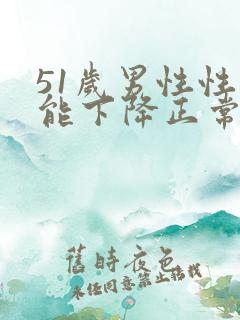 51歲男性性
能下降正常
舊時夜色
未经同意禁止搭载